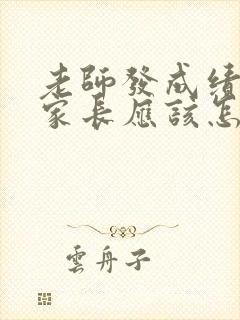 老師發成績
家長應該怎
雲舟子